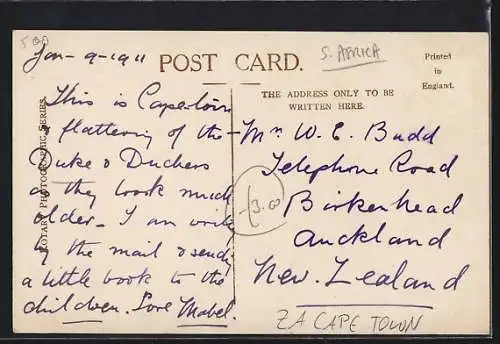 500
Jan-9-1911
POST CARD.
S. AFRICA
Printed
in
England.
THE ADDRESS ONLY TO BE
WRITTEN HERE.
ROTARY PHOTOGRAPHIC SERIES.
This is Capetown
& flattering of the
Duke & Duchess
as they look much
older - I am
by the mail & send
a little book to the
children. Love Mabel.
Mr. W. E. Budd
Telephone Road
Birkenhead
Auckland
New. Zealand
3.00
ZA CAPE TOWN